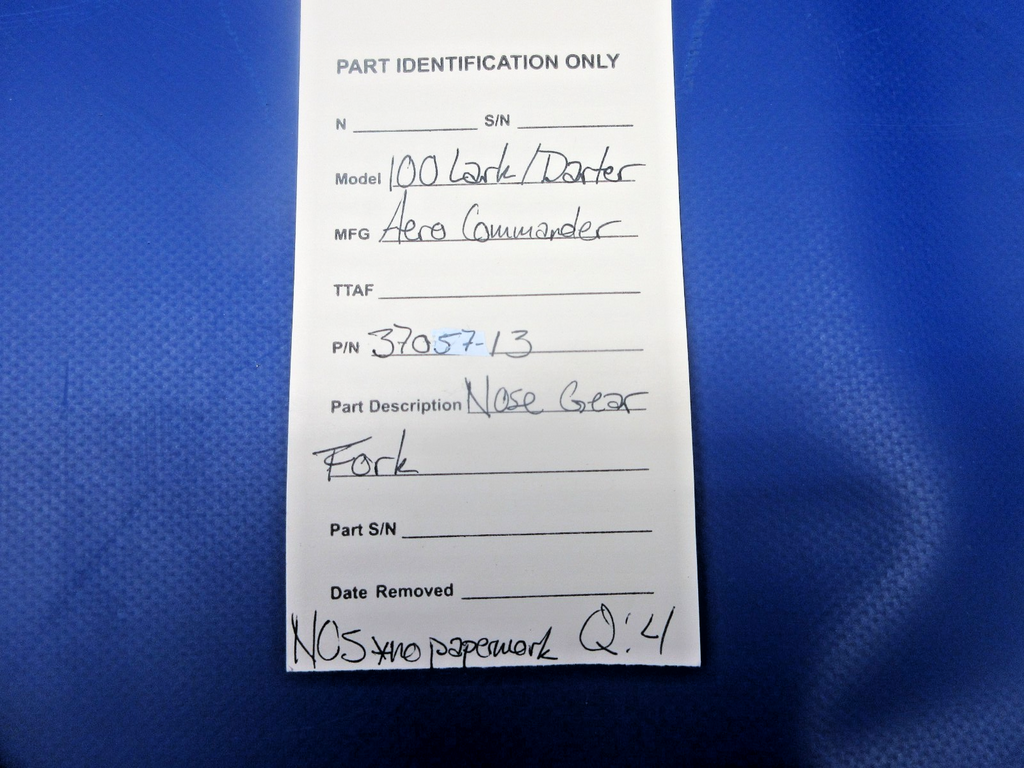 PART IDENTIFICATION ONLY
N S/N
Model 100 Lark/Darter
MFG Aero Commander
TTAF
P/N 37057-13
Part Description Nose Gear
Fork
Part S/N
Date Removed
NOS *no paperwork Q:4